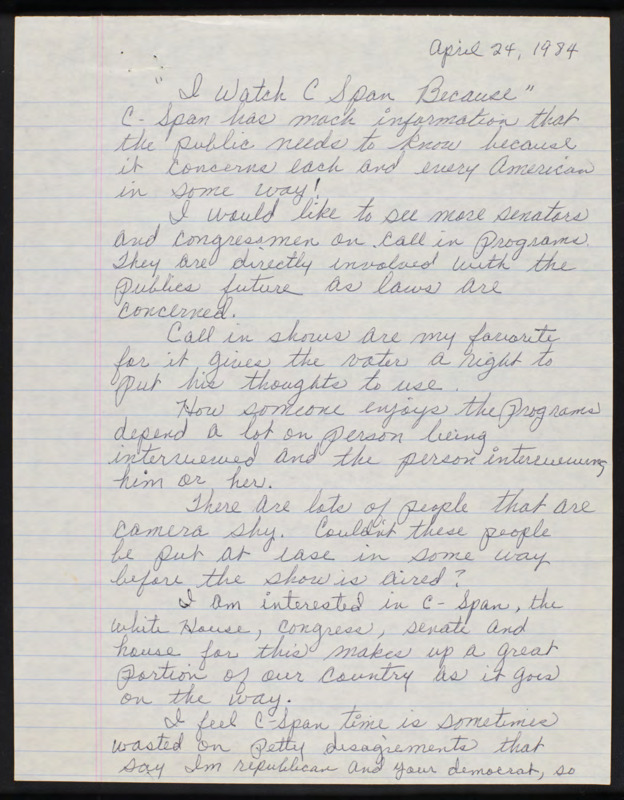 April 24, 1984
" I Watch C Span Because"
C-Span has much information that
the public needs to know because
it concerns each and every American
in some way!
I would like to see more senators
and congressmen on call in programs.
They are directly involved with the
publics future as laws are
concerned.
Call in shows are my favorite
for it gives the voter a right to
put his thoughts to use.
How someone enjoys the programs
depend a lot on person being
interviewed and the person interviewing
him or her.
There are lots of people that are
camera shy. Couldn't these people
be put at ease in some way
before the show is aired?
I am interested in C-Span, the
White House, Congress, senate and
house for this makes up a great
portion of our country as it goes
on the way.
I feel C-Span time is sometimes
wasted on petty disagrements that
say Im republican and your democrat, so